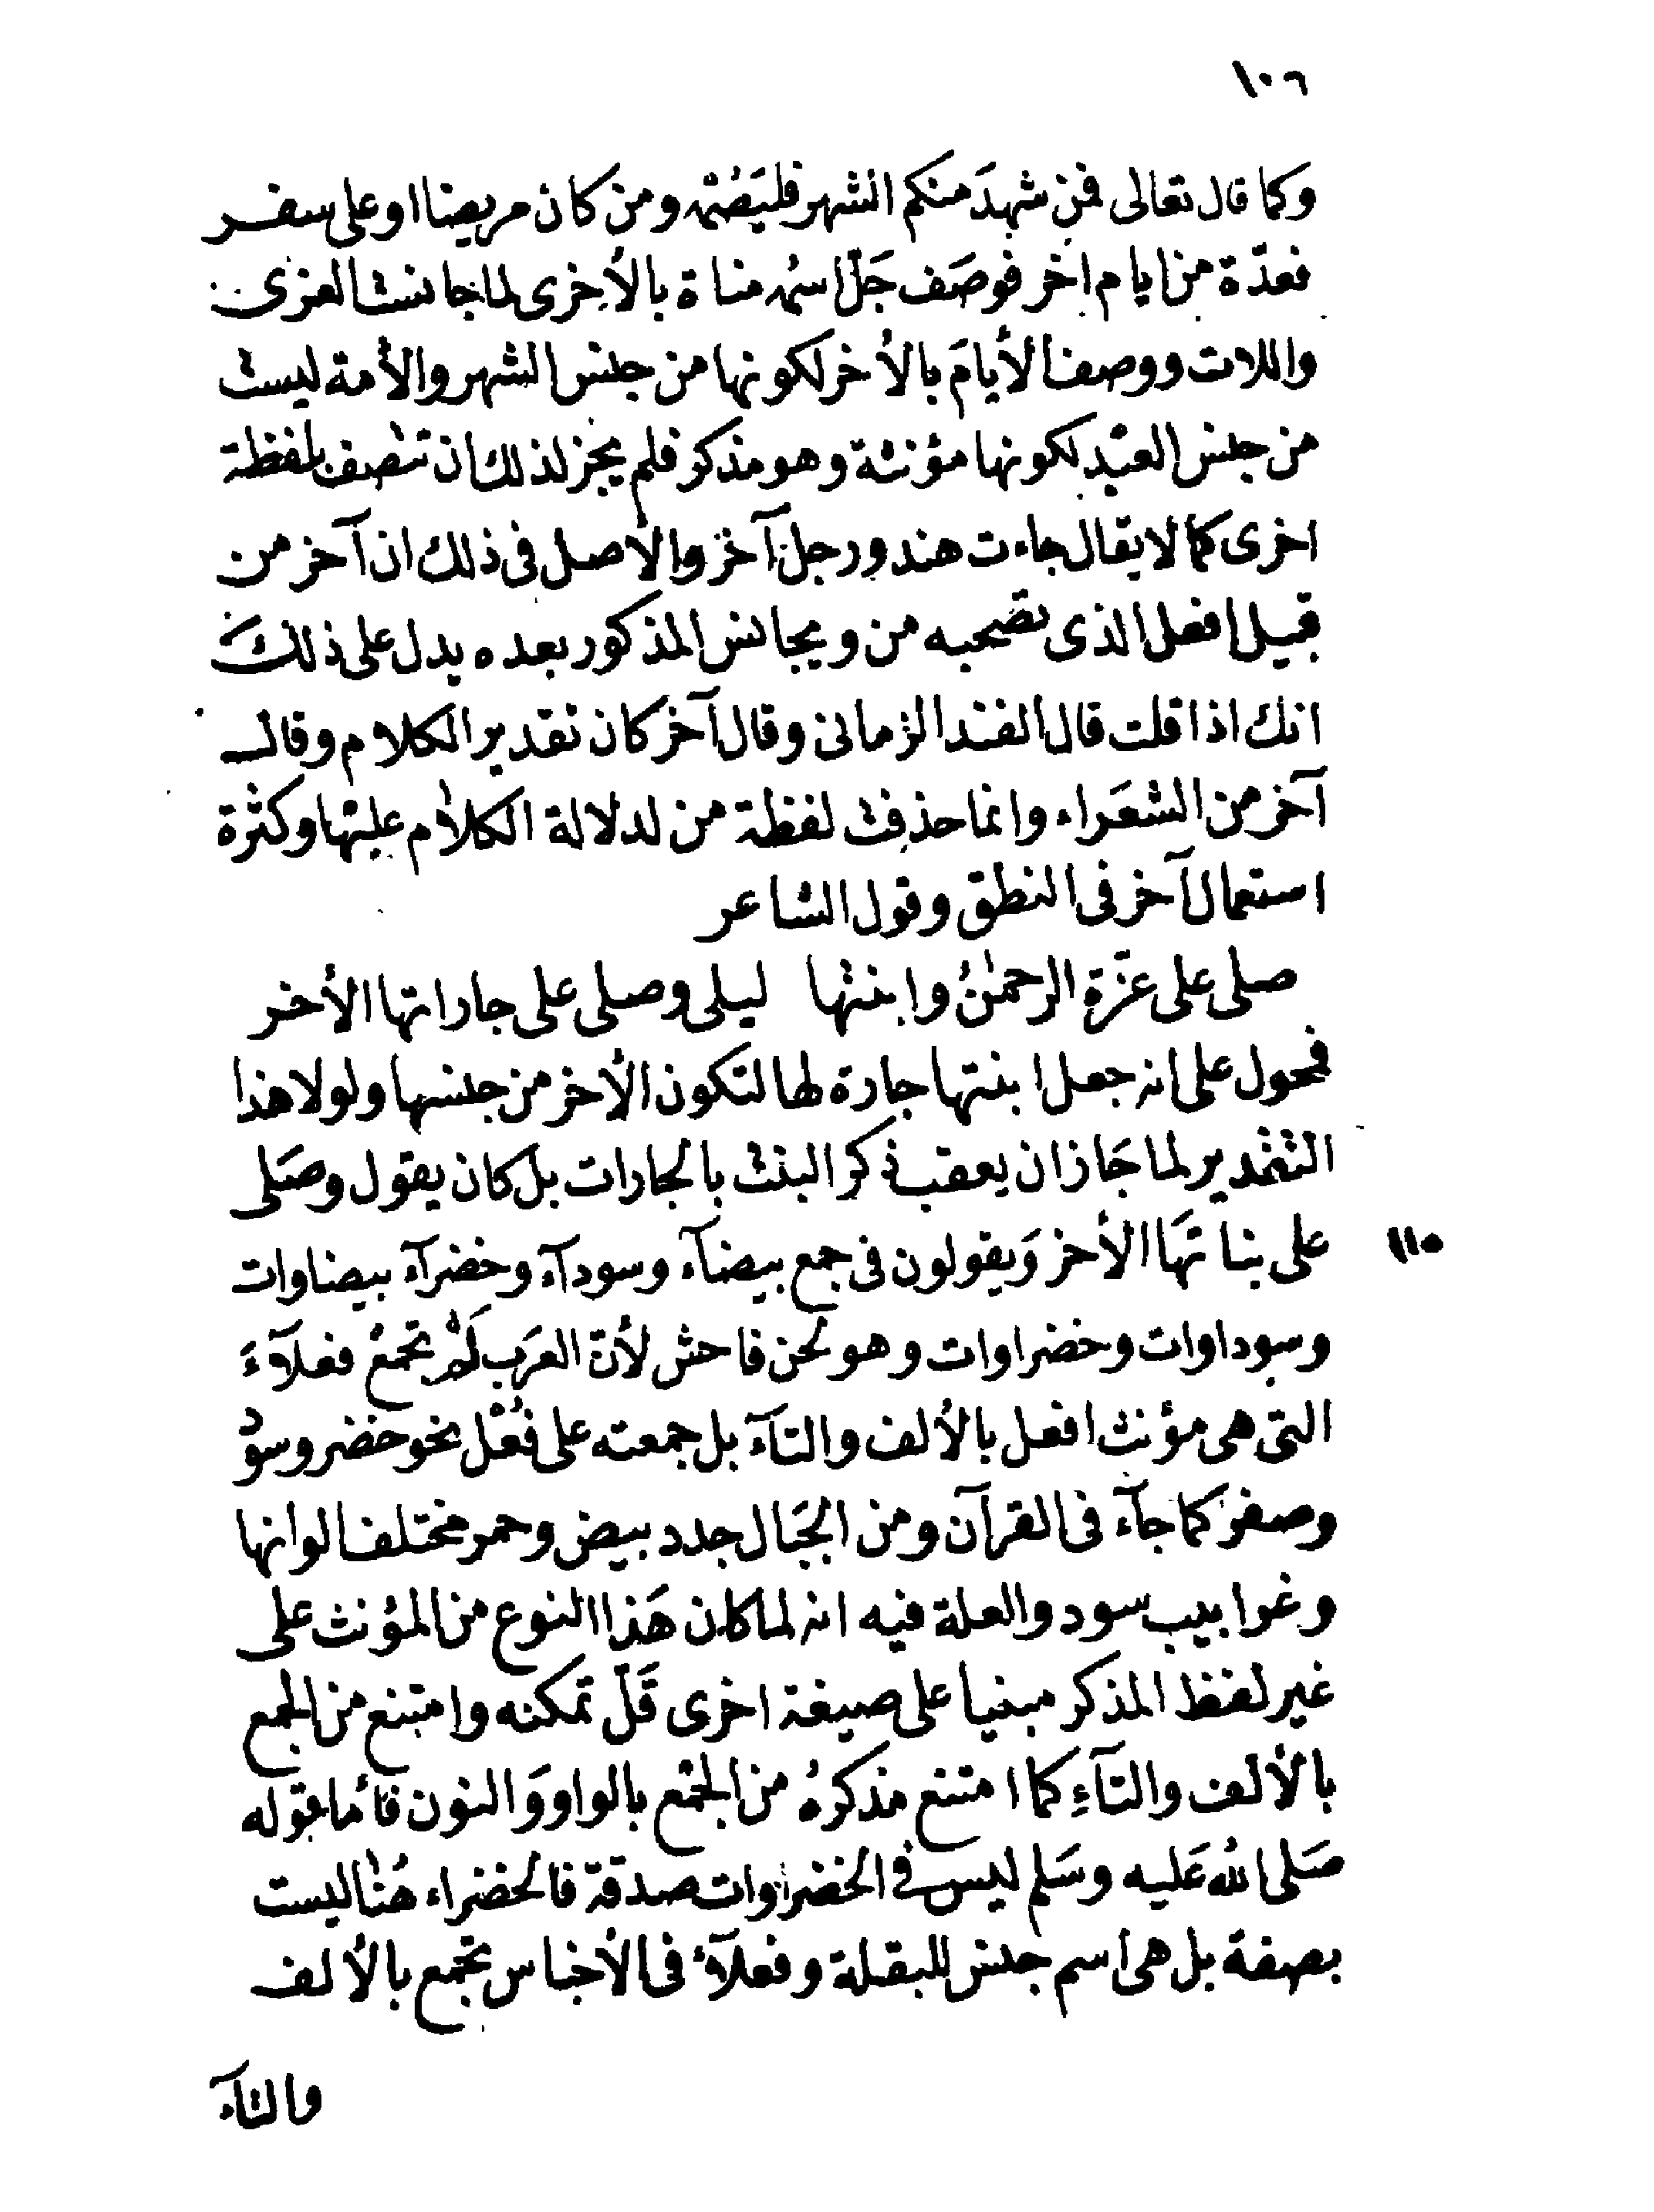 ١٠٦
وكما قال تعالى فمن شهدَ منكم الشهر فليَصُمْه ومن كان مريضا او على سفر
فعدّة من ايام اخر فوصَف جَلّ اسمُه مناة بالأخرى لما جانست العزى
واللات ووصف الأيامَ بالأخر لكونها من جنس الشهر والأمة ليست
من جنس العبْد لكونها مؤنثة وهو مذكر فلم يجز لذلك ان تتصف بلفظة
اخرى كما لا يقال جاءت هند ورجل آخر والأصل فى ذلك ان آخر من
قبيل افعل الذى تصحبه من ويجانس المذكور بعده يدل على ذلكَ
انك اذا قلت قال الفند الزمانى وقال آخر كان تقدير الكلام وقال
آخر من الشعَراء وانما حذفت لفظة من لدلالة الكلام عليْها وكثرة
استعمال آخر فى النطق وقول الشاعر
صلى على عزّة الرحمٰنُ وابنتها ليلى وصلى على جاراتها الأخر
فمحمول على انه جعل ابنتها جارة لها لتكون الأخر من جنسها ولولا هذا
التقدير لما جَاز ان يعقب ذكر البنت بالجارات بل كان يقول وصَلى
١١٥ على بناتهَا الأخر وَيقولون فى جمع بيضآء وسودآء وخضرآء بيضاوات
وسوداوات وخضراوات وهو لحن فاحش لأنّ العرَب لَمْ تجمعْ فعلآءَ
التى هى مؤنث افعل بالألف والتآء بل جمعته على فُعْل نحو خضر وسوْد
وصفر كما جآء فى القرآن ومن الجبَال جدد بيض وحمر مختلف الوانها
وغرابيب سود والعلة فيه انه لما كان هَذا النوع من المؤنث على
غير لفظ المذكر مبنيا على صيغة اخرى قَلّ تمكنه وامتنع من الجمع
بالألف والتآءِ كما امتنع مذكرهُ من الجمْع بالواو وَالنون فأما قوله
صَلى الله عَليه وسَلم ليس فى الخضراوات صدقة فالخضراء هُنا ليست
بصفة بل هى اسم جنس للبقلة وفعلآء فى الأجناس تجمع بالألف
والتآء